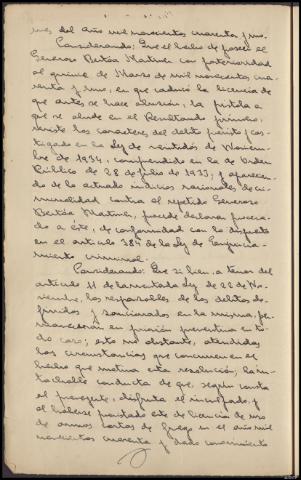 mes del año mil novecientos cuarenta y uno.
Considerando: Que el hecho de poseer el
Generoso Batrés Matuner con posterioridad
al quince de Marzo de mil novecientos cua-
renta y uno, en que caducó la licencia de
que antes se hace alusión, la pistola a
que se alude en el Resultando primero,
reviste los caracteres del delito previsto y cas-
tigado en la Ley de veintidós de Noviem-
bre de 1934, comprendido en la de Orden
Público de 28 de julio de 1933; y aparecien-
do de lo actuado indicios racionales de cri-
minalidad contra el repetido Generoso
procede declarar procesa-
do a éste, de conformidad con lo dispuesto
en el artículo 384 de la Ley de Enjuicia-
miento criminal.
Considerando: Que si bien, a tenor del
artículo 11 de la mentada Ley de 22 de No-
viembre, los responsables de los delitos de-
finidos y sancionados en la misma, per-
manecerán en prisión preventiva en to-
do caso; esto no obstante, atendidas
las circunstancias que concurren en el
hecho que motiva esta resolución, la in-
tachable conducta de que, según consta
al presente, disfruta el inculpado, y
el hallarse provisto éste de licencia de uso
de armas cortas de fuego en el año mil
novecientos cuarenta y dado conocimiento